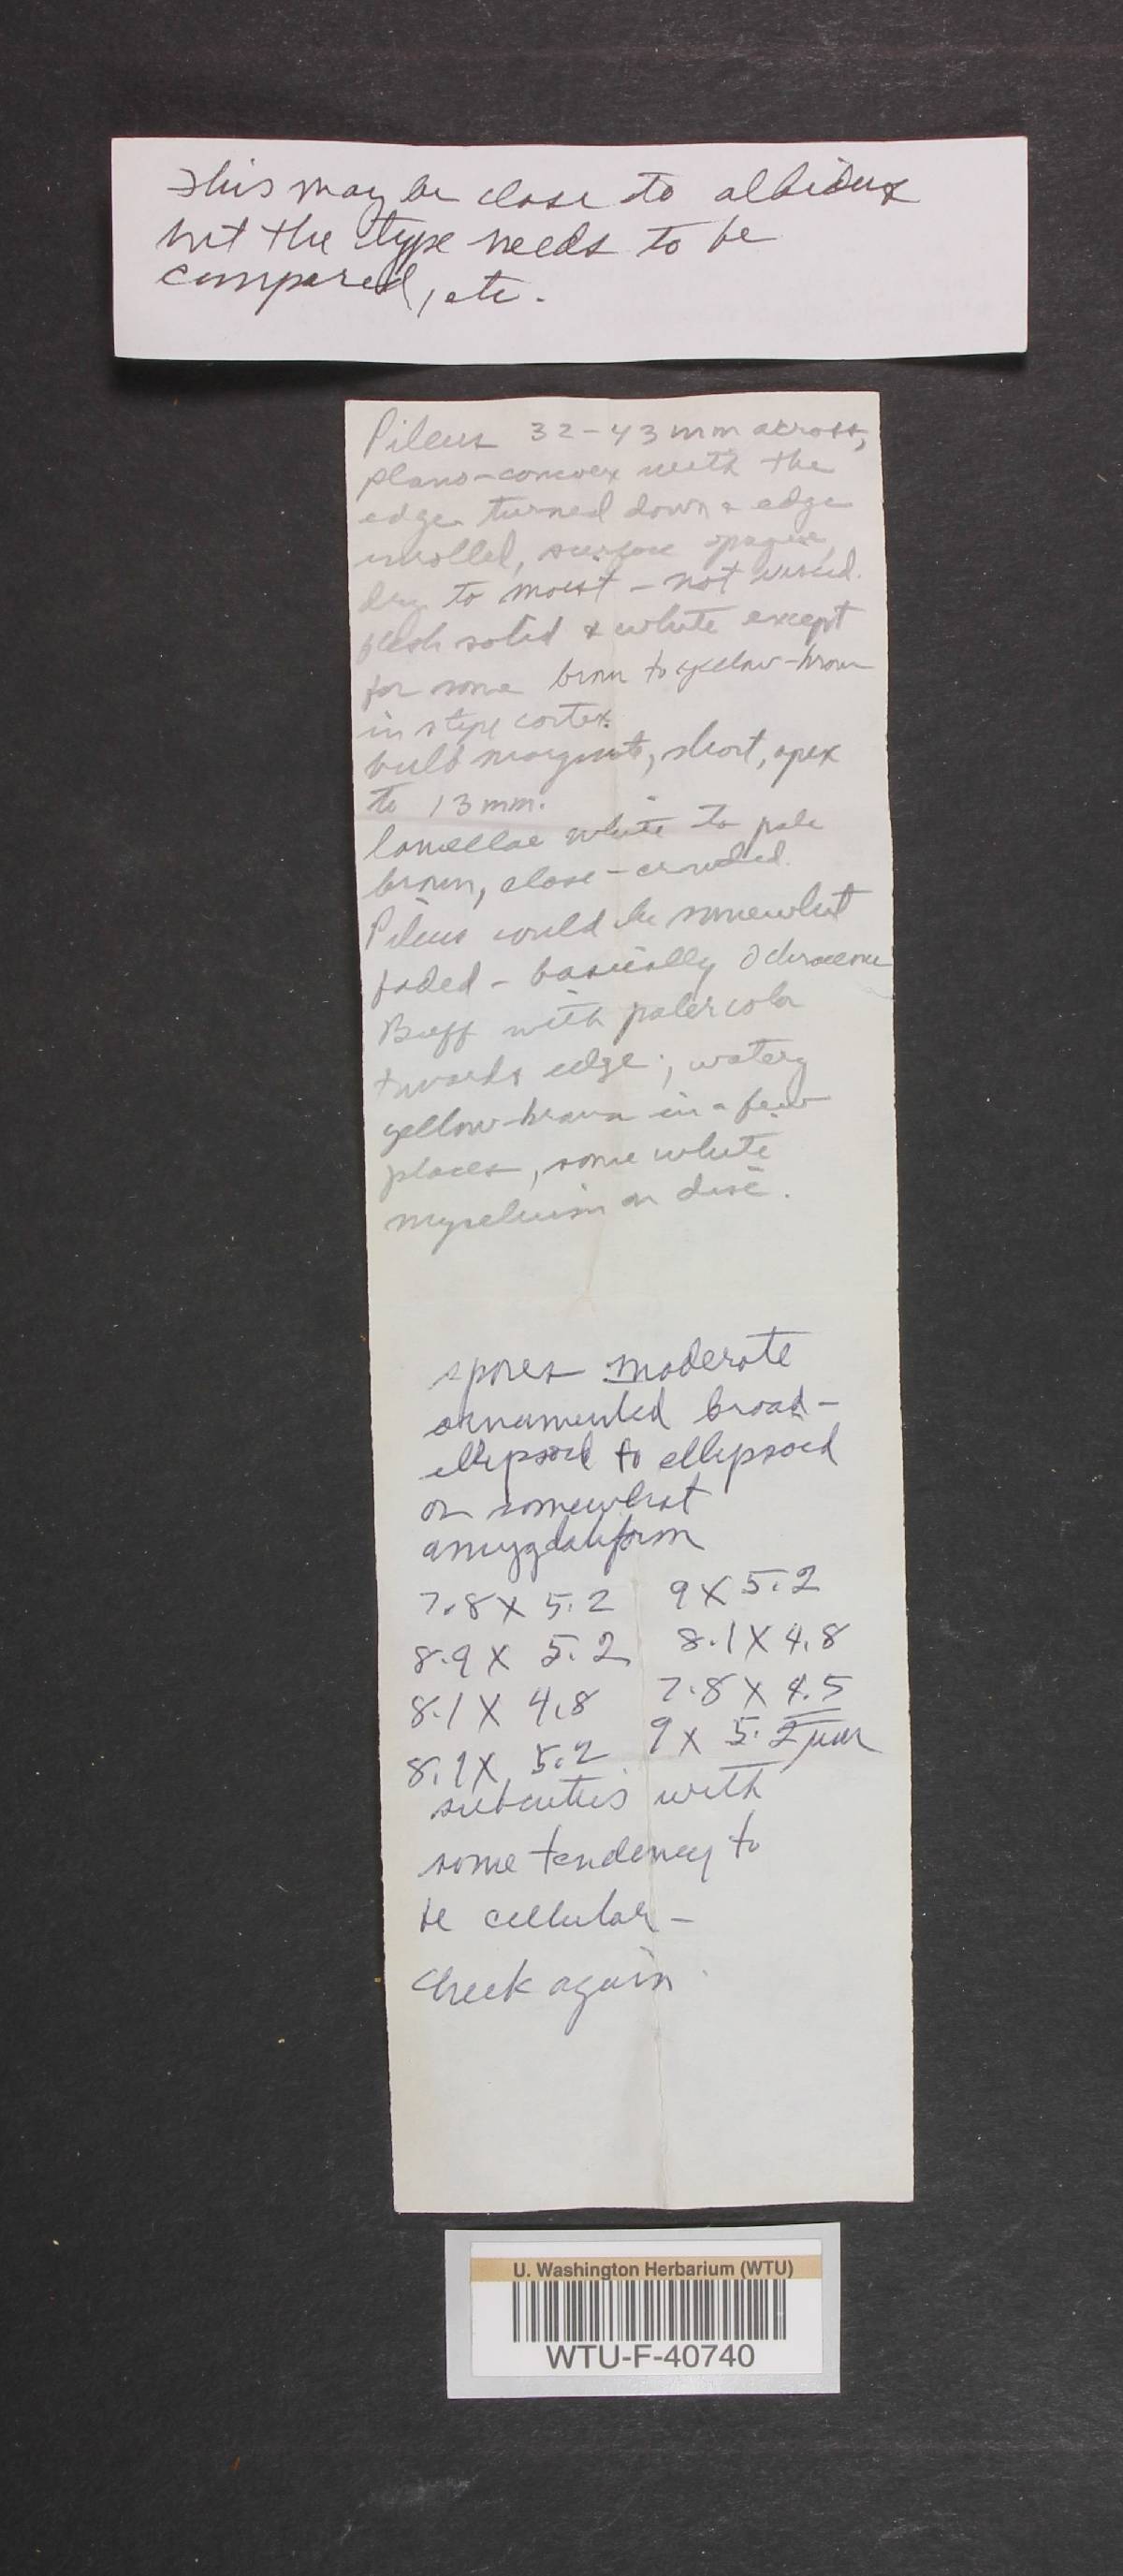 This may be close to albidus
but the type needs to be
compared, etc.
Pileus 32-43 mm across,
plano-convex with the
edge turned down & edge
inrolled, surface opaque,
dry to moist - not viscid.
flesh solid & white except
for some brown to yellow-brown
in stipe cortex.
bulb marginate, short, apex
to 13 mm.
lamellae white to pale
brown, close-crowded.
Pileus could be somewhat
faded - basically Ochraceous
Buff with paler color
towards edge; watery
yellow-brown in a few
places, some white
mycelium on disc.
spores moderate
ornamented broad-
ellipsoid to ellipsoid
or somewhat
amygdaliform
7.8 X 5.2 9 X 5.2
8.9 X 5.2 8.1 X 4.8
8.1 X 4.8 7.8 X 4.5
8.9 X 5.2 9 X 5.2 µm
subcutis with
some tendency to
be cellular -
check again.
U. Washington Herbarium (WTU)
WTU-F-40740